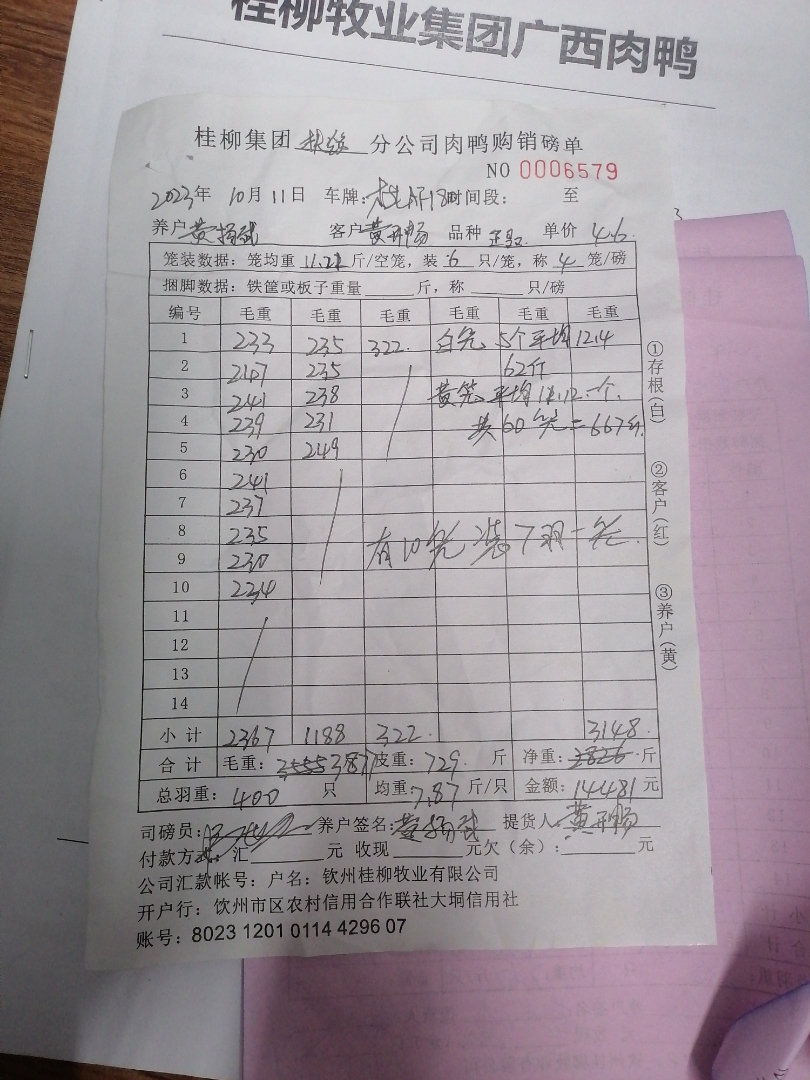 桂柳牧业集团广西肉鸭
桂柳集团 分公司肉鸭购销磅单
NO 0006579
2023年 10月11日 车牌: 时间段: 至
养户 黄扬武 客户 黄开畅 品种 单价 4.6
笼装数据: 笼均重 11.21 斤/空笼, 装 6 只/笼, 称 4 笼/磅
捆脚数据: 铁筐或板子重量 斤, 称 只/磅
编号 毛重 毛重 毛重 毛重 毛重 毛重
1 233 235 322. 白笼 5个平均 12.4
2 247 235 62斤
3 241 238 黄笼 平均 一个.
4 239 231 共60笼=667斤.
5 230 249
6 241
7 237
8 235 有10笼 装7羽一笼.
9 230
10 234
11
12
13
14
小计 2367 1188 322. 3148.
合计 毛重: 3555 3877 皮重: 729. 斤 净重: 2826 斤
总羽重: 400 只 均重: 7.87 斤/只 金额: 14481 元
司磅员: 养户签名: 黄扬武 提货人: 黄开畅
付款方式: 汇 元 收现 元欠(余): 元
公司汇款帐号: 户名: 钦州桂柳牧业有限公司
开户行: 饮州市区农村信用合作联社大垌信用社
账号: 8023 1201 0114 4296 07
①存根(白)
②客户(红)
③养户(黄)